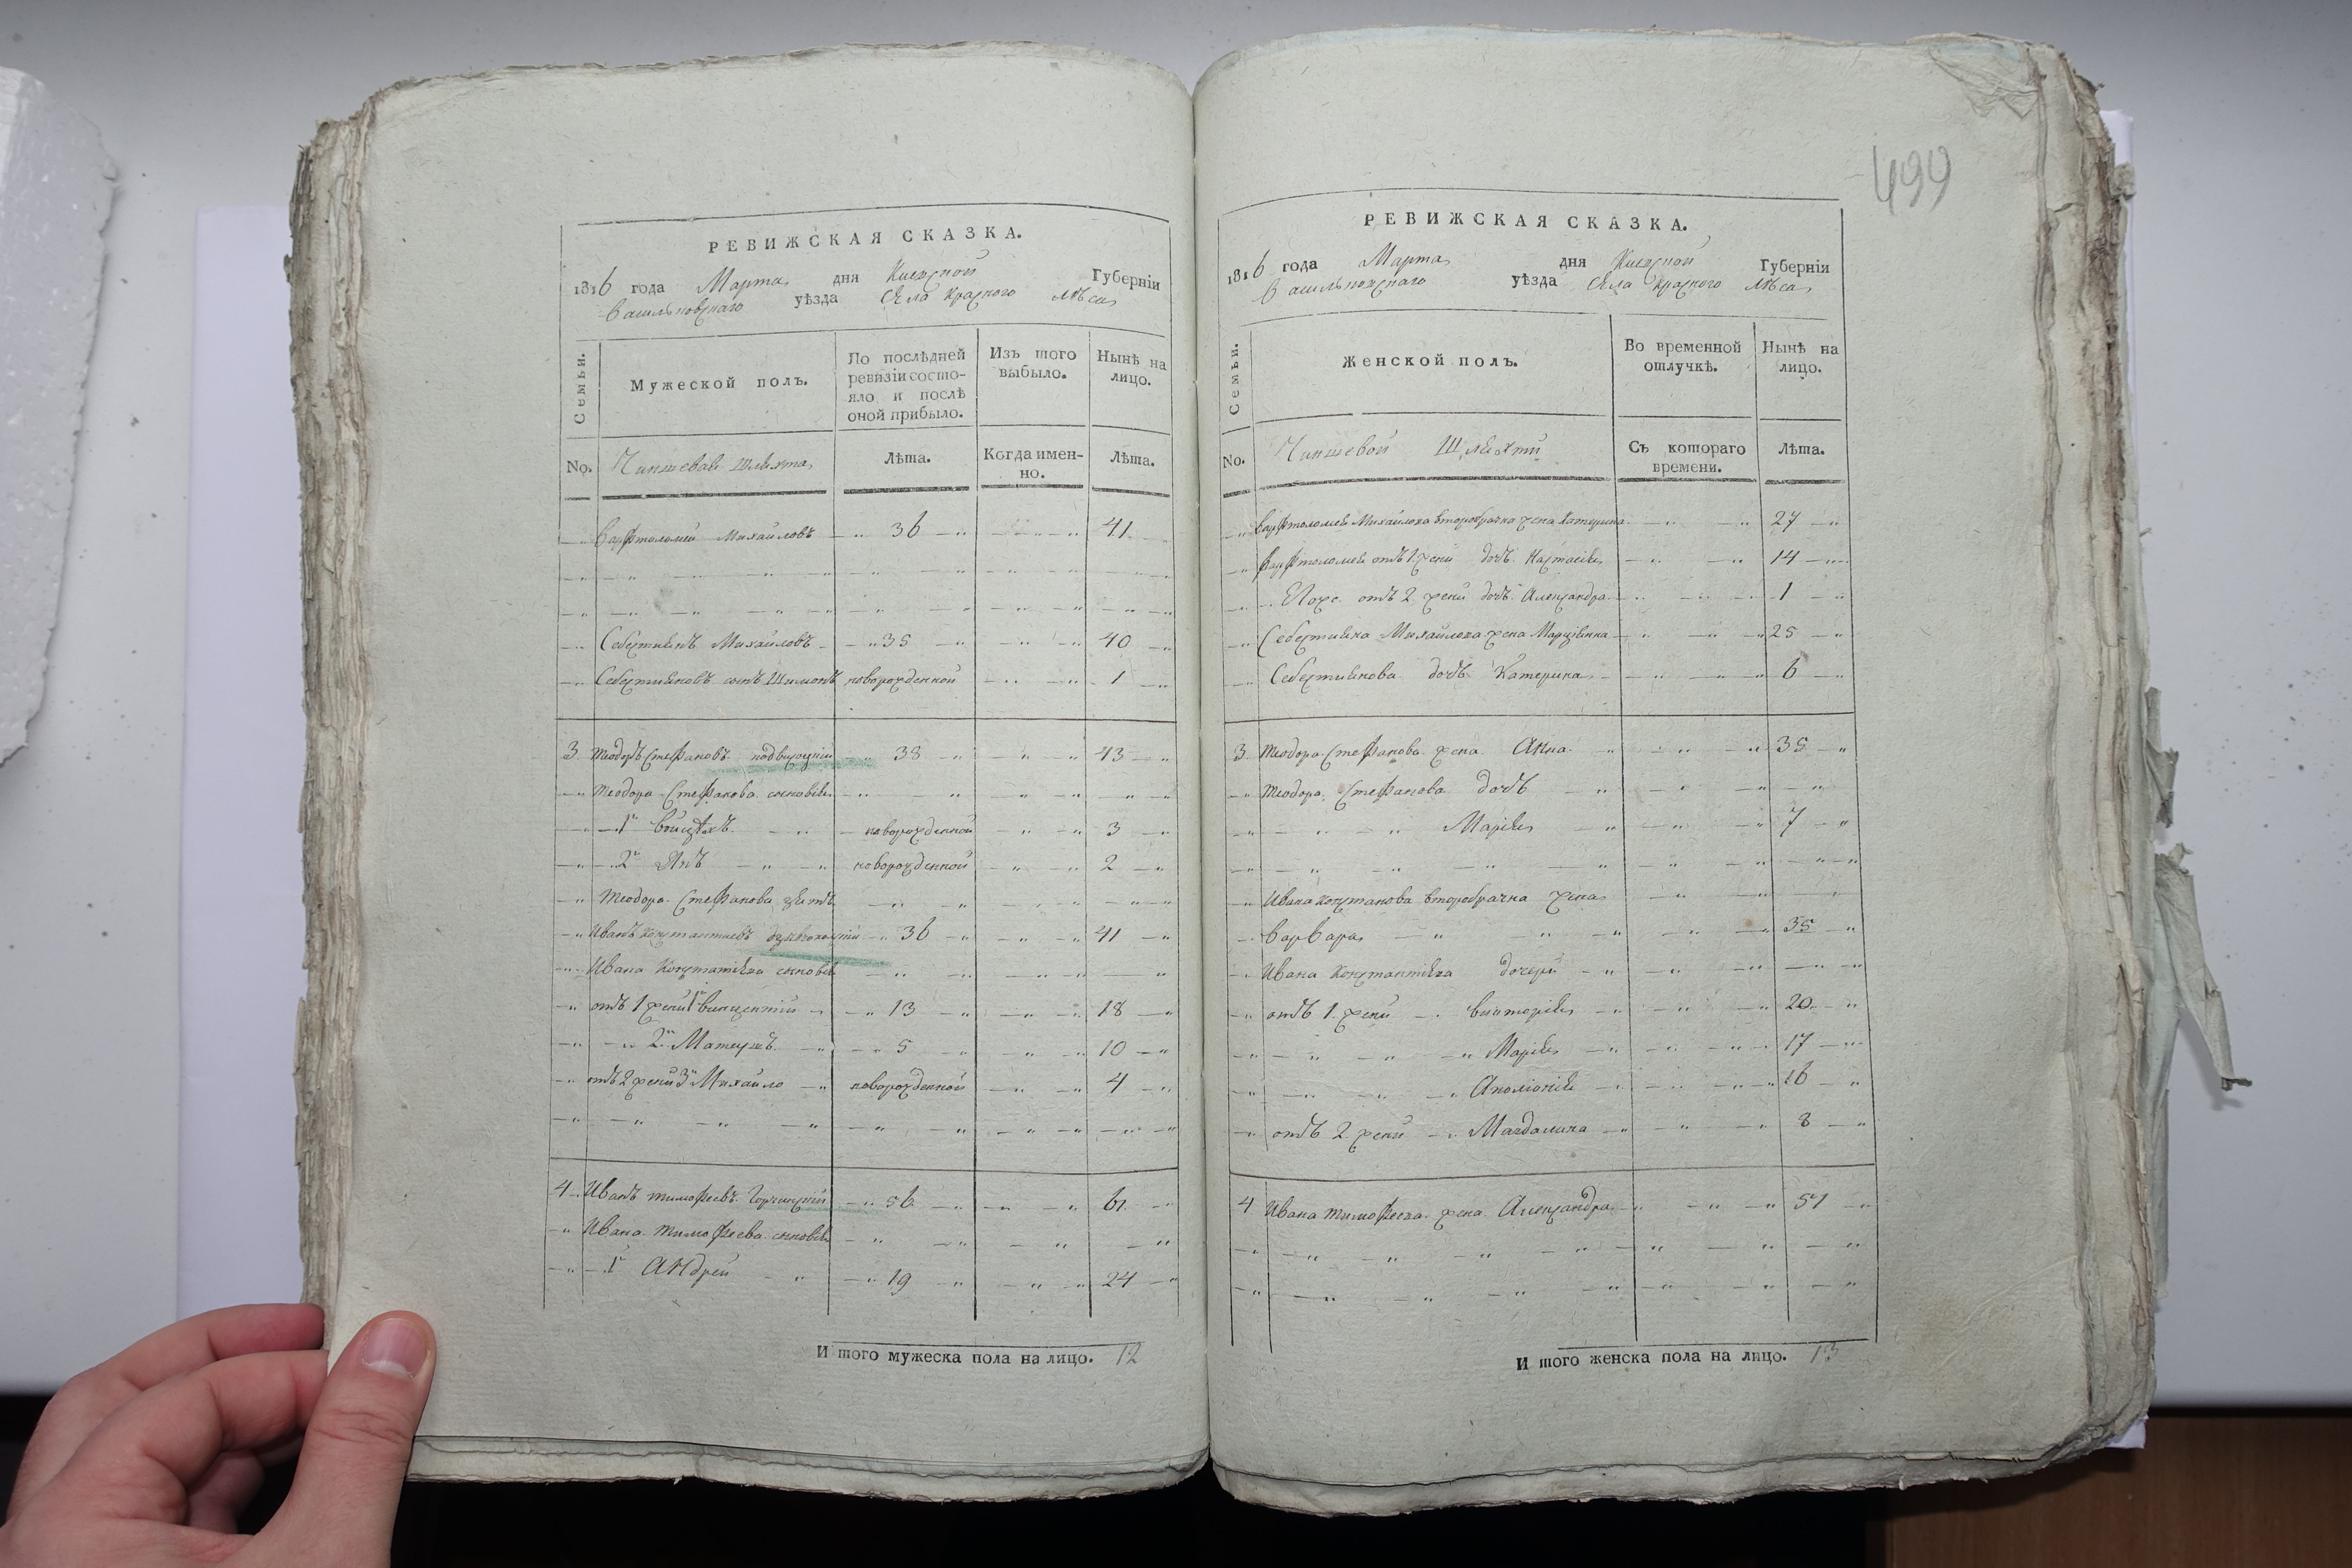 499
РЕВИЖСКАЯ СКАЗКА.
1816 года Марта дня Киевской Губерніи
Васильковскаго уѣзда Села Красного Лѣса
Семьи. Мужеской полъ. По послѣдней ревизіи состо-яло и послѣ оной прибыло. Изъ того выбыло. Нынѣ на лицо.
No. Чиншевая Шляхта Лѣта. Когда имен-но. Лѣта.
Варфтоломей Михайловъ 36 41
Себестиянъ Михайловъ 35 40
Себестияновъ сынъ Шимонъ новорожденной 1
3 Теодоръ Стефановъ 38 43
Теодора Стефанова сыновья
1й Войцѣхъ новорожденной 3
2й Янъ новорожденной 2
Теодора Стефанова зять
Иванъ 36 41
Ивана сыновья
отъ 1 жены 1й Винцентій 13 18
2й Матеушъ 5 10
отъ 2 жены 3й Михайло новорожденной 4
4 Иванъ Тимофеевъ 56 61
Ивана Тимофеева сыновья
1й Андрей 19 24
И того мужеска пола на лицо. 12
РЕВИЖСКАЯ СКАЗКА.
1816 года Марта дня Киевской Губерніи
Васильковскаго уѣзда Села Красного Лѣса
Семьи. Женской полъ. Во временной отлучкѣ. Нынѣ на лицо.
No. Чиншевой Шляхты Съ котораго времени. Лѣта.
Варфтоломея Михайлова второбрачна жена Катерина 27
Варфтоломея отъ 1 жены дочь Настасія 14
отъ 2 жены дочь Александра 1
Себестияна Михайлова жена Марцѣянна 25
Себестиянова дочь Катерина 6
3 Теодора Стефанова жена Анна 35
Теодора Стефанова дочь
Марія 7
Ивана второбрачна жена
Варвара 35
Ивана дочери
отъ 1 жены Викторія 20
Марія 17
Аполіонія 16
отъ 2 жены Магдалина 8
4 Ивана Тимофеева жена Александра 51
И того женска пола на лицо. 13